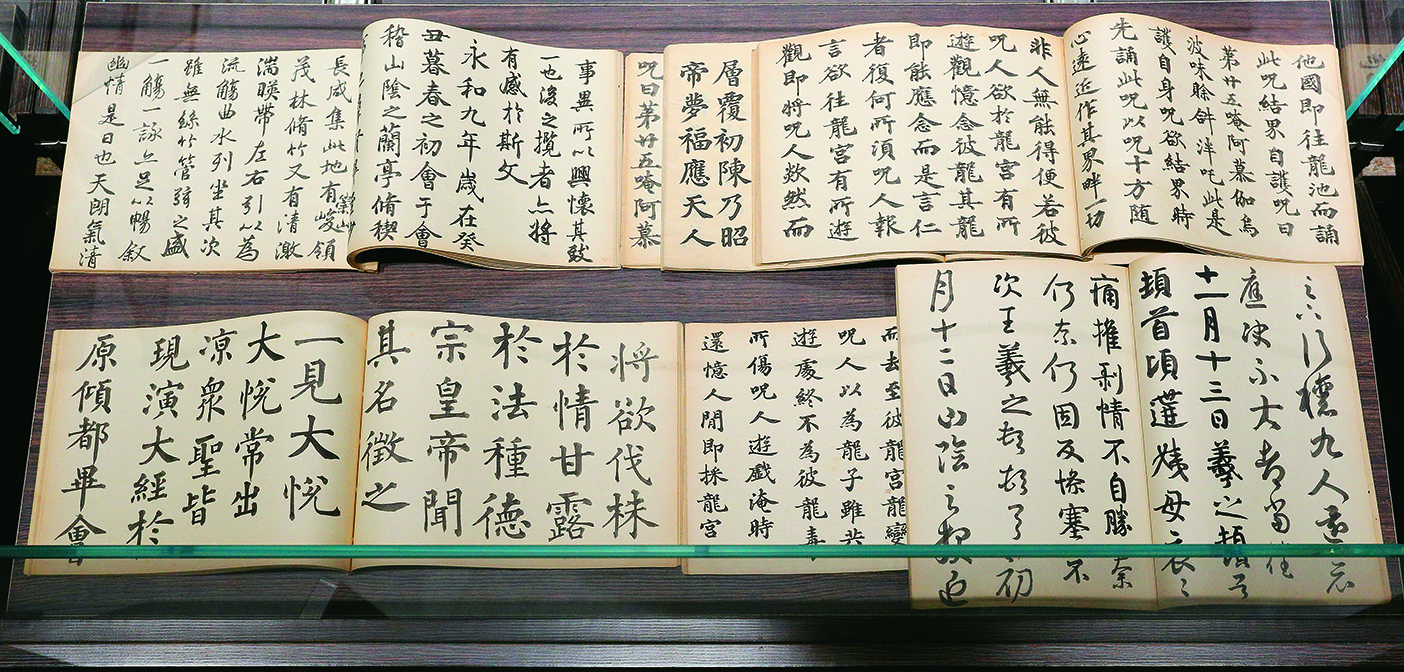 他國即往龍池而誦
此呪結界自護呪曰
第廿五唵阿慕伽烏
波味賒斜泮吒此是
護自身呪欲結界時
先誦此呪以呪十方随
心遠近作其界畔一切
非人無能得便若彼
呪人欲於龍宮有所
遊觀憶念彼龍其龍
即能應念而是言仁
者復何所須呪人報
言欲往龍宮有所遊
觀即將呪人欻然而
層覆初陳乃昭
帝夢福應天人
呪曰第廿五唵阿慕
事異所以興懷其致
一也後之攬者亦將
有感於斯文
永和九年歲在癸
丑暮春之初會于會
稽山陰之蘭亭脩稧
長咸集此地有崇山峻領
茂林脩竹又有清激
湍暎帶左右引以為
流觴曲水列坐其次
雖無絲竹管弦之盛
一觴詠亦足以暢叙
幽情是日也天朗氣清
九人還示
應決不大都當佳
十一月十三日羲之頓首
頓首頃遘姨母哀哀
痛摧剥情不自勝奈
何奈何因反慘塞不
次王羲之頓首頓首初
月十二日山陰之報近
而去至彼龍宮龍變
呪人以為龍子雖共
遊處終不為彼龍毒
所傷呪人遊戲淹時
還憶人間即採龍宮
將欲伐株
於情甘露
於法種德
宗皇帝聞
其名徵之
一見大悅
大悅常出
凉衆聖皆
現演大經於
原傾都畢會